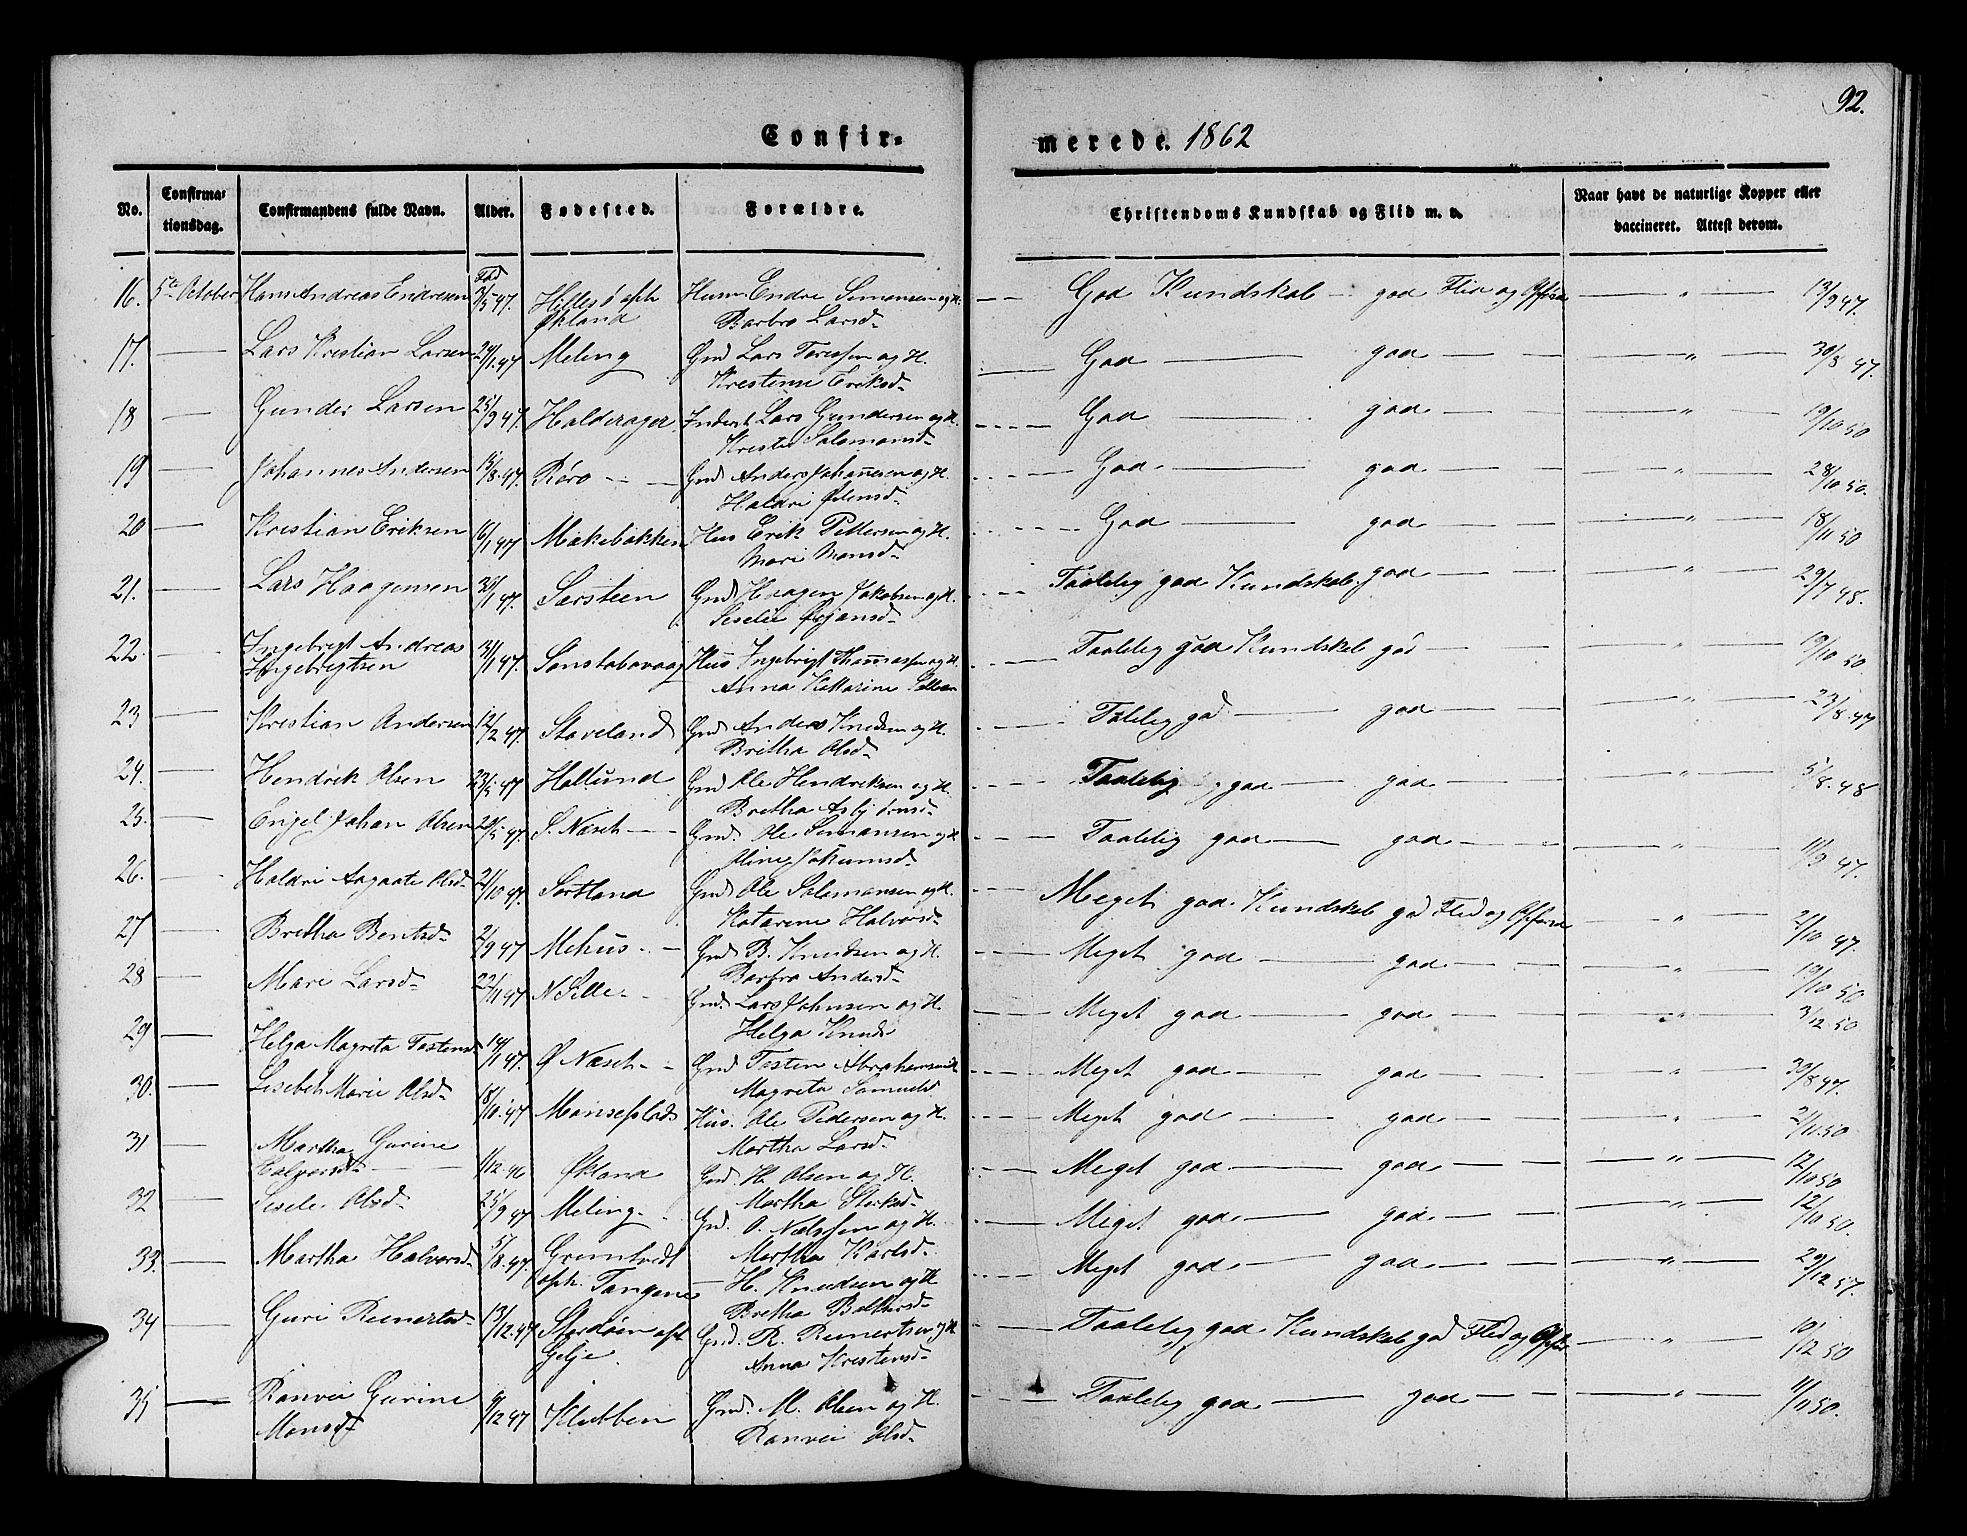 92.
Confir-
merede. 1862
No.
Confirma-
tionsdag.
Confirmandens fulde Navn.
Alder.
Fødested.
Forældre.
Christendoms Kundskab og Flid m. v.
Naar havt de naturlige Kopper eller
vaccineret. Attest derom.
16. 5te October Hans Andreas Endresen Fød 3/5 47. Huusm Endre Simonsen og H. God Kundskab - god Flid og Opførs — " — 19/9 47.
Økland Barbro Larsd.
17. — Lars Kristian Larsen 24/1 47 Meling Gmd Lars og H. God — god — — " — 30/8 47.
Eriksd.
18 — Gunder Larsen 25/9 47. Halderager Inderst Lars Gundersen og H. God — god — — " — 19/10 50
Salamonsd.
19 — Johannes Andersen 15/8. 47. Røro - - Gmd Anders Johannesen og H. God — god — — " — 28/10 50.
Haldri
20 — Kristian Eriksen 16/1 47 Mækebakken Hus Erik Pettersen og H. God — god — — " — 18/11 50
Mari Monsd.
21. — Lars Haagensen 47. Særsteen Gmd Haagen Jakobsen og H. Taalelig god Kundskab. god — — " — 29/7 48.
Ørjansd.
22. — Ingebregt Andreas 31/1 47. Hus Ingebrigt og H. Taalelig god Kundskab god — " — 19/10 50
Ingebregtsen Anna Katarine
23 — Kristian Andersen 12/2 47. Staveland Gmd Anders Knudsen og H. Talelig god — god — — " — 23/8. 47
Britha Olsd.
24. — Hendrik Olsen 23/5 47 Hallund Gmd Ole Hendriksen og H. Taalelig god — god — — " — 5/8. 48
Bretha Asbjørnsd.
25. — Engel Johan Olsen 47. S. Næset - - Gmd. Ole Simonsen og H. Taalelig god — god — — " — 11/9 47.
Oline
26. — Haldri Aagaate Olsd. 21/10 47. Sortland Gmd. Ole Salamonsen og H. Meget god Kundskab god Flid og Opførs — " — 2/10 47
Katarine Halvorsd.
27 — Bretha Bentsd. 2/9 47 Mehus - - Gmd B. Knudsen og H. Meget god — god — — " — 19/10 50
Barbro Andersd.
28 — Mari Larsd. 22/11 47 N Selle - Gmd. Lars Johnsen og H. Meget god — god — — " — 3/12 50
Helga Knuds
29 — Helga Magreta Tostensd. 14/1 47. Ø Næset - - Gmd Tosten Abrahamsen Meget god — god — — " — 30/8 47.
Magreta Samuelsd
30. — Lisebet Marie Olsd. 18/10. 47 Monseplads Hus. Ole Pedersen og H. Meget god — god — — " — 2/11 50
Martha Larsd.
31 — Martha Gurine 1/12 46 Økland Gmd. H. Olsen og H. Meget god — god — — " — 12/10 50
Halvorsd. — Martha
32 — Sesele Olsd. 25/9 47 Meling - Gmd. O. og H. Meget god — god — — " — 12/10 50.
Martha Karlsd.
33. — Martha Halvorsd. 5/8. 47. — H. Knudsen og H Meget god — god — — " — 29/12 57.
oph. Tangene Bretha
34 — Guri Reinertsd. 13/12. 47 Stordøen oph Gmd. R. Reinertsen og H Taalelig god Kundskab god Flid og Opførs — " — 10/12 50
Gelje. Anna Kristensd.
35 — Ranvei Gurine 9/12 47 Klubben Gmd. M. Olsen og H. Taalelig god — god — — " — 11/11 50.
Monsd. Ranvei Olsd.